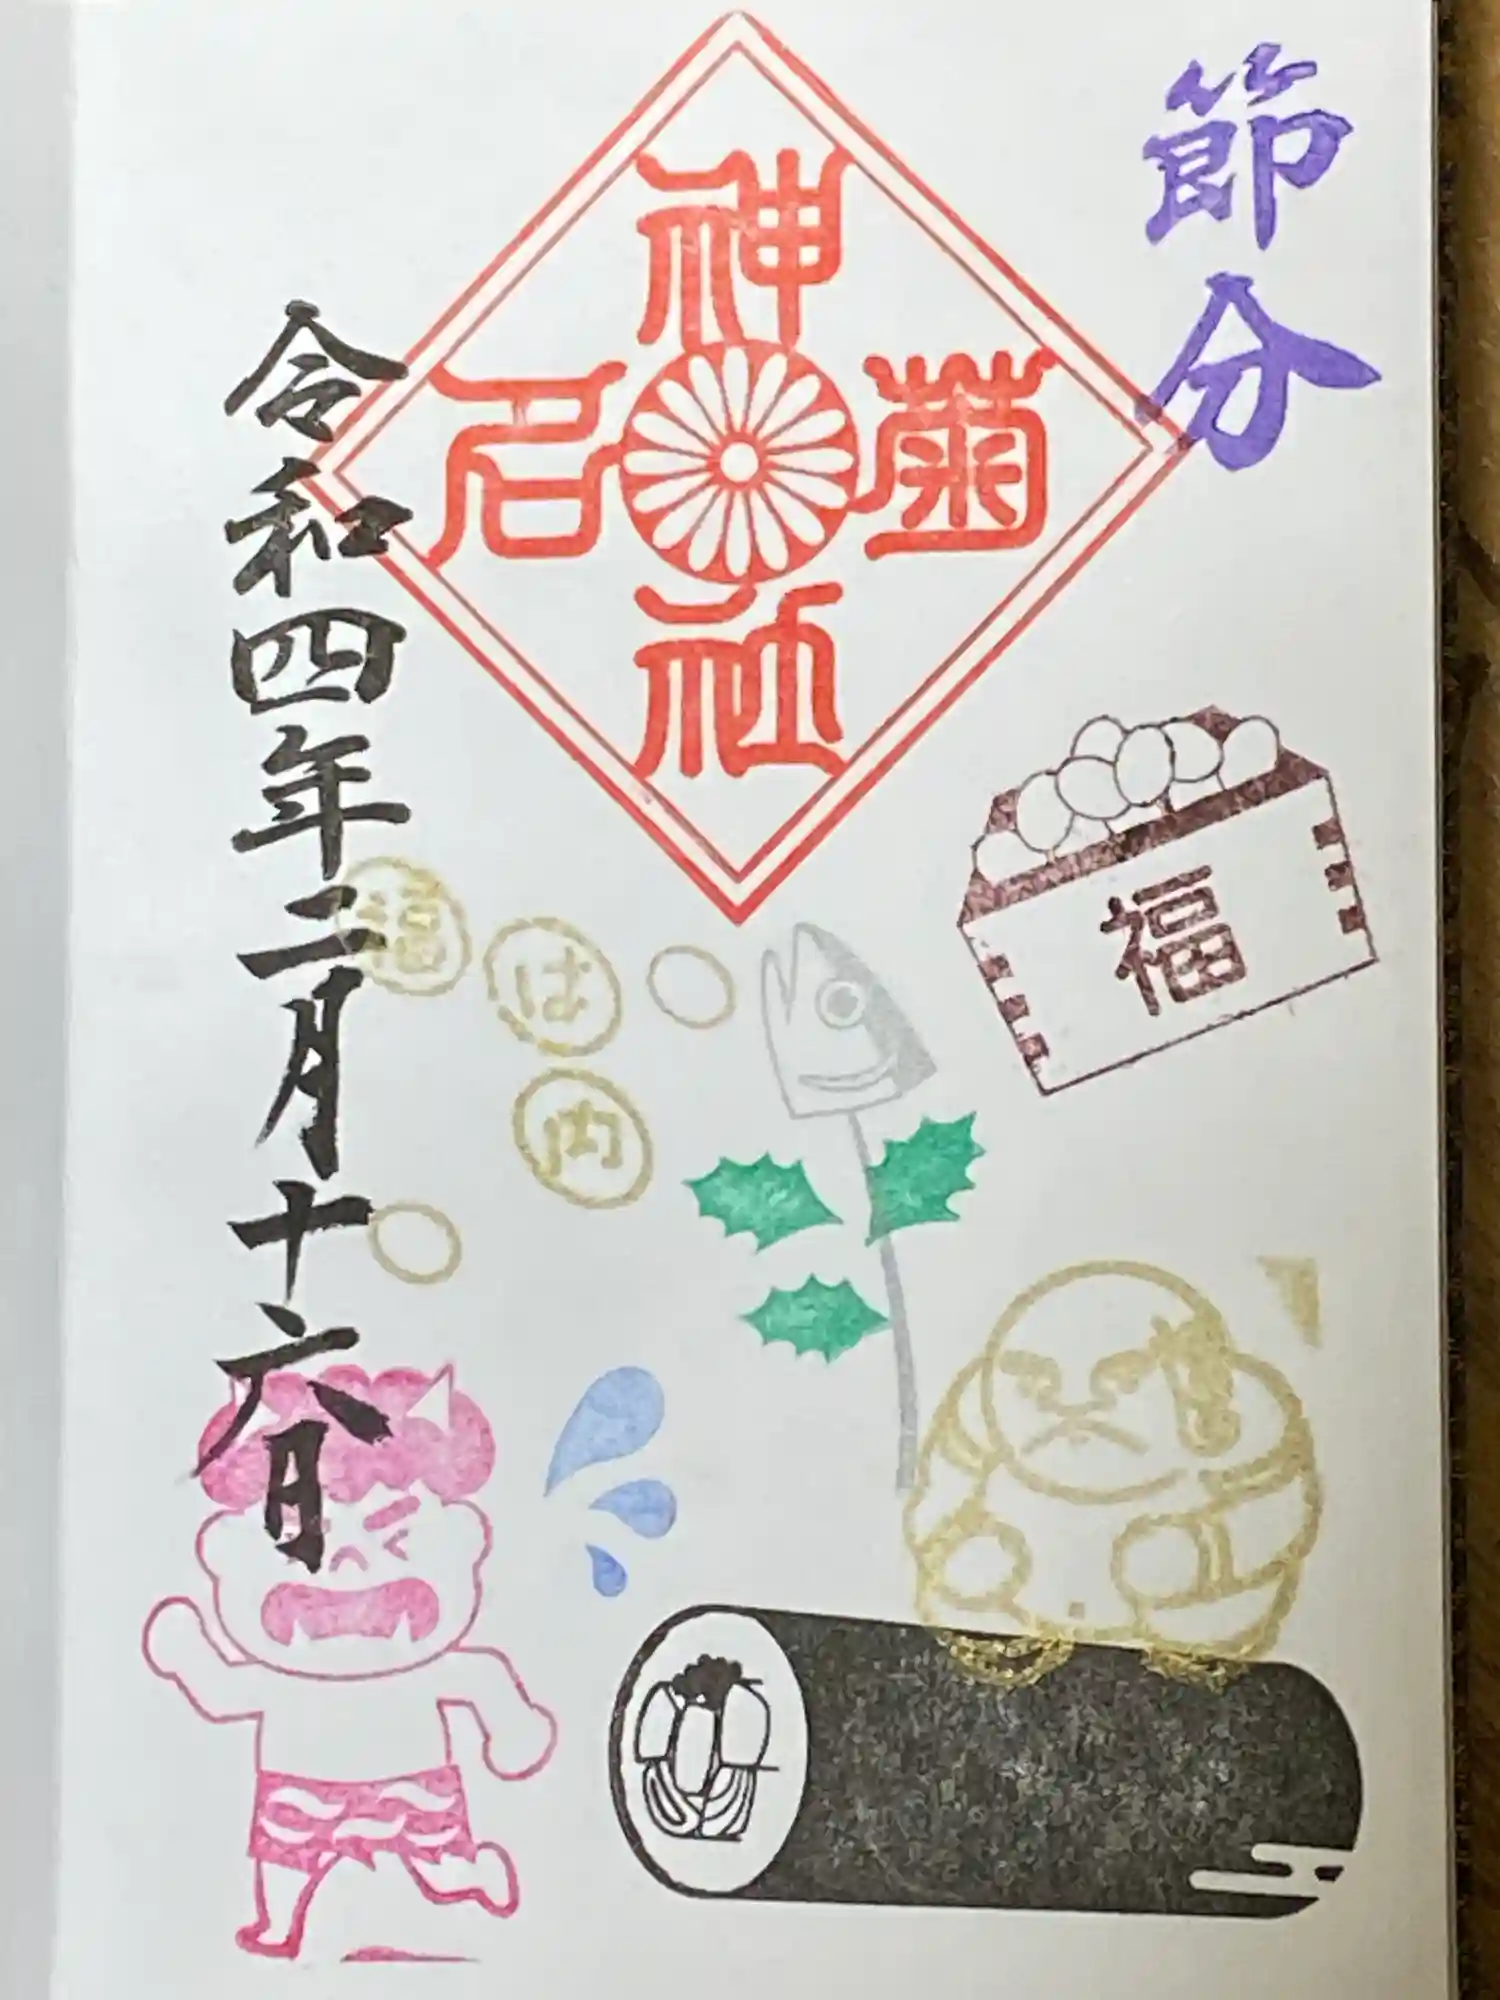 節分
神
菊名
社
福
福
は
内
令和四年二月十六日